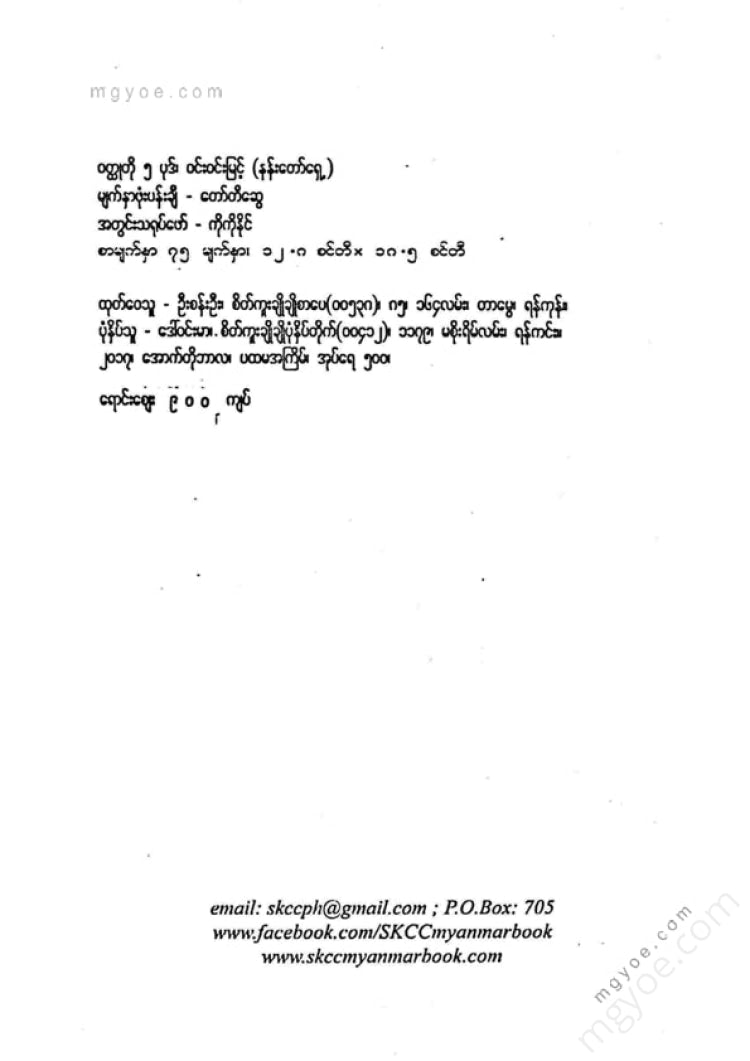 mgyoe.com
ဝတ္ထုတို ၅ ပုဒ်၊ ဝင်းဝင်းမြင့် (နန်းတော်ရှေ့)
မျက်နှာဖုံးပန်းချီ - တော်တိဆွေ
အတွင်းသရုပ်ဖော် - ကိုကိုနိုင်
စာမျက်နှာ ၇၅ မျက်နှာ၊ ၁၂.၈ စင်တီ× ၁၈.၅ စင်တီ
ထုတ်ဝေသူ - ဦးစန်းဦး၊ စိတ်ကူးချိုချိုစာပေ(၀၀၅၃၈)၊ ၈၅၊ ၁၆၄လမ်း၊ တာမွေ၊ ရန်ကုန်။
ပုံနှိပ်သူ - ဒေါ်ဝင်းမာ၊ စိတ်ကူးချိုချိုပုံနှိပ်တိုက်(၀၀၄၁၂)၊ ၁၁၇၉၊ မစိုးရိမ်လမ်း၊ ရန်ကင်း။
၂၀၁၇၊ အောက်တိုဘာလ၊ ပထမအကြိမ်၊ အုပ်ရေ ၅၀၀၊
ရောင်းဈေး ၉၀၀ ကျပ်
email: skccph@gmail.com ; P.O.Box: 705
www.facebook.com/SKCCmyanmarbook
www.skccmyanmarbook.com
mgyoe.com
mgyoe.com